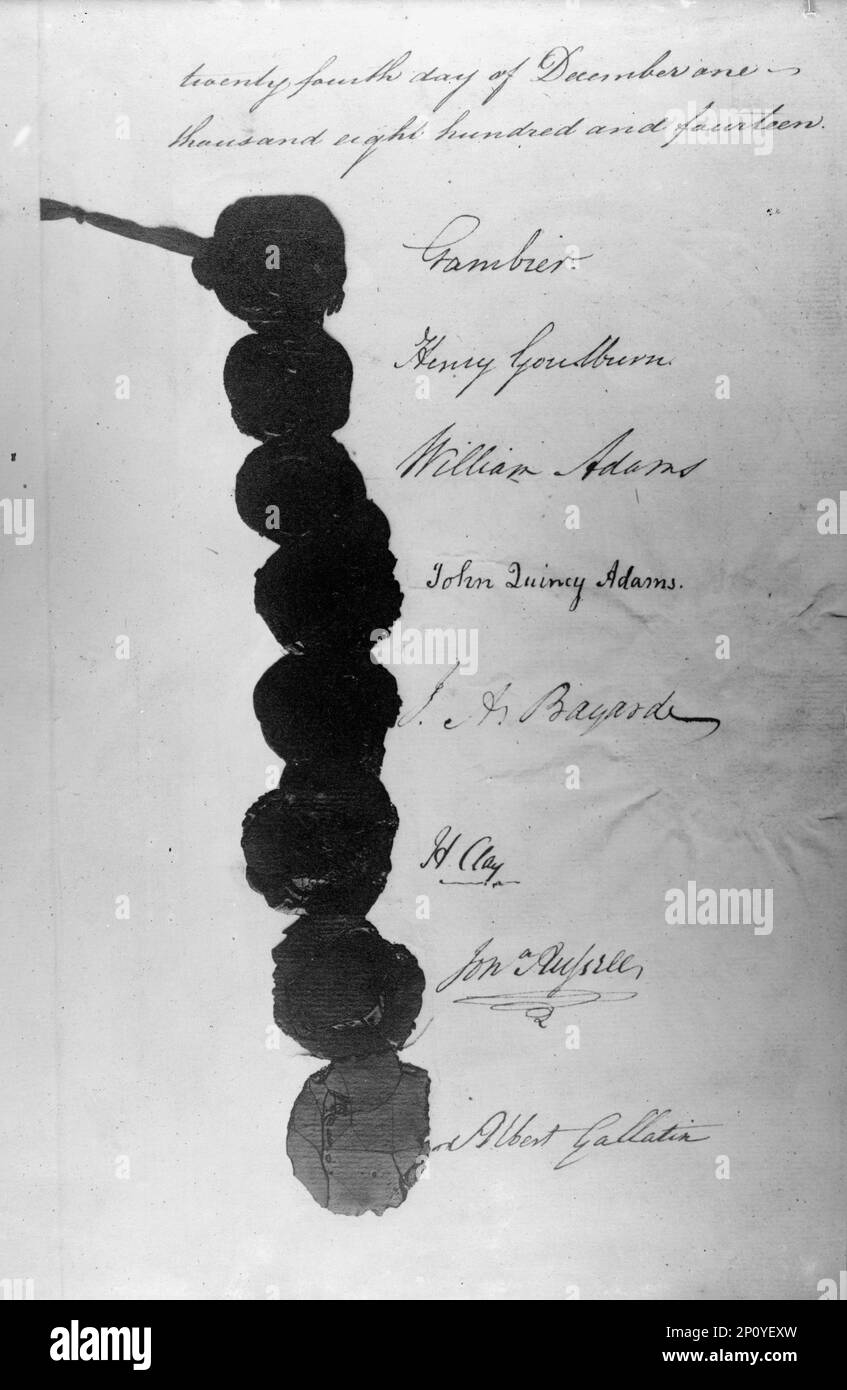 twenty fourth day of December one
thousand eight hundred and fourteen.
Gambier.
Henry Goulburn
William Adams
John Quincy Adams.
J. A. Bayard
H. Clay
Jon.a Russell
Albert Gallatin
alamy
a
a
alamy
alamy
a
alamy
Image ID: 2P0YEXW
www.alamy.com